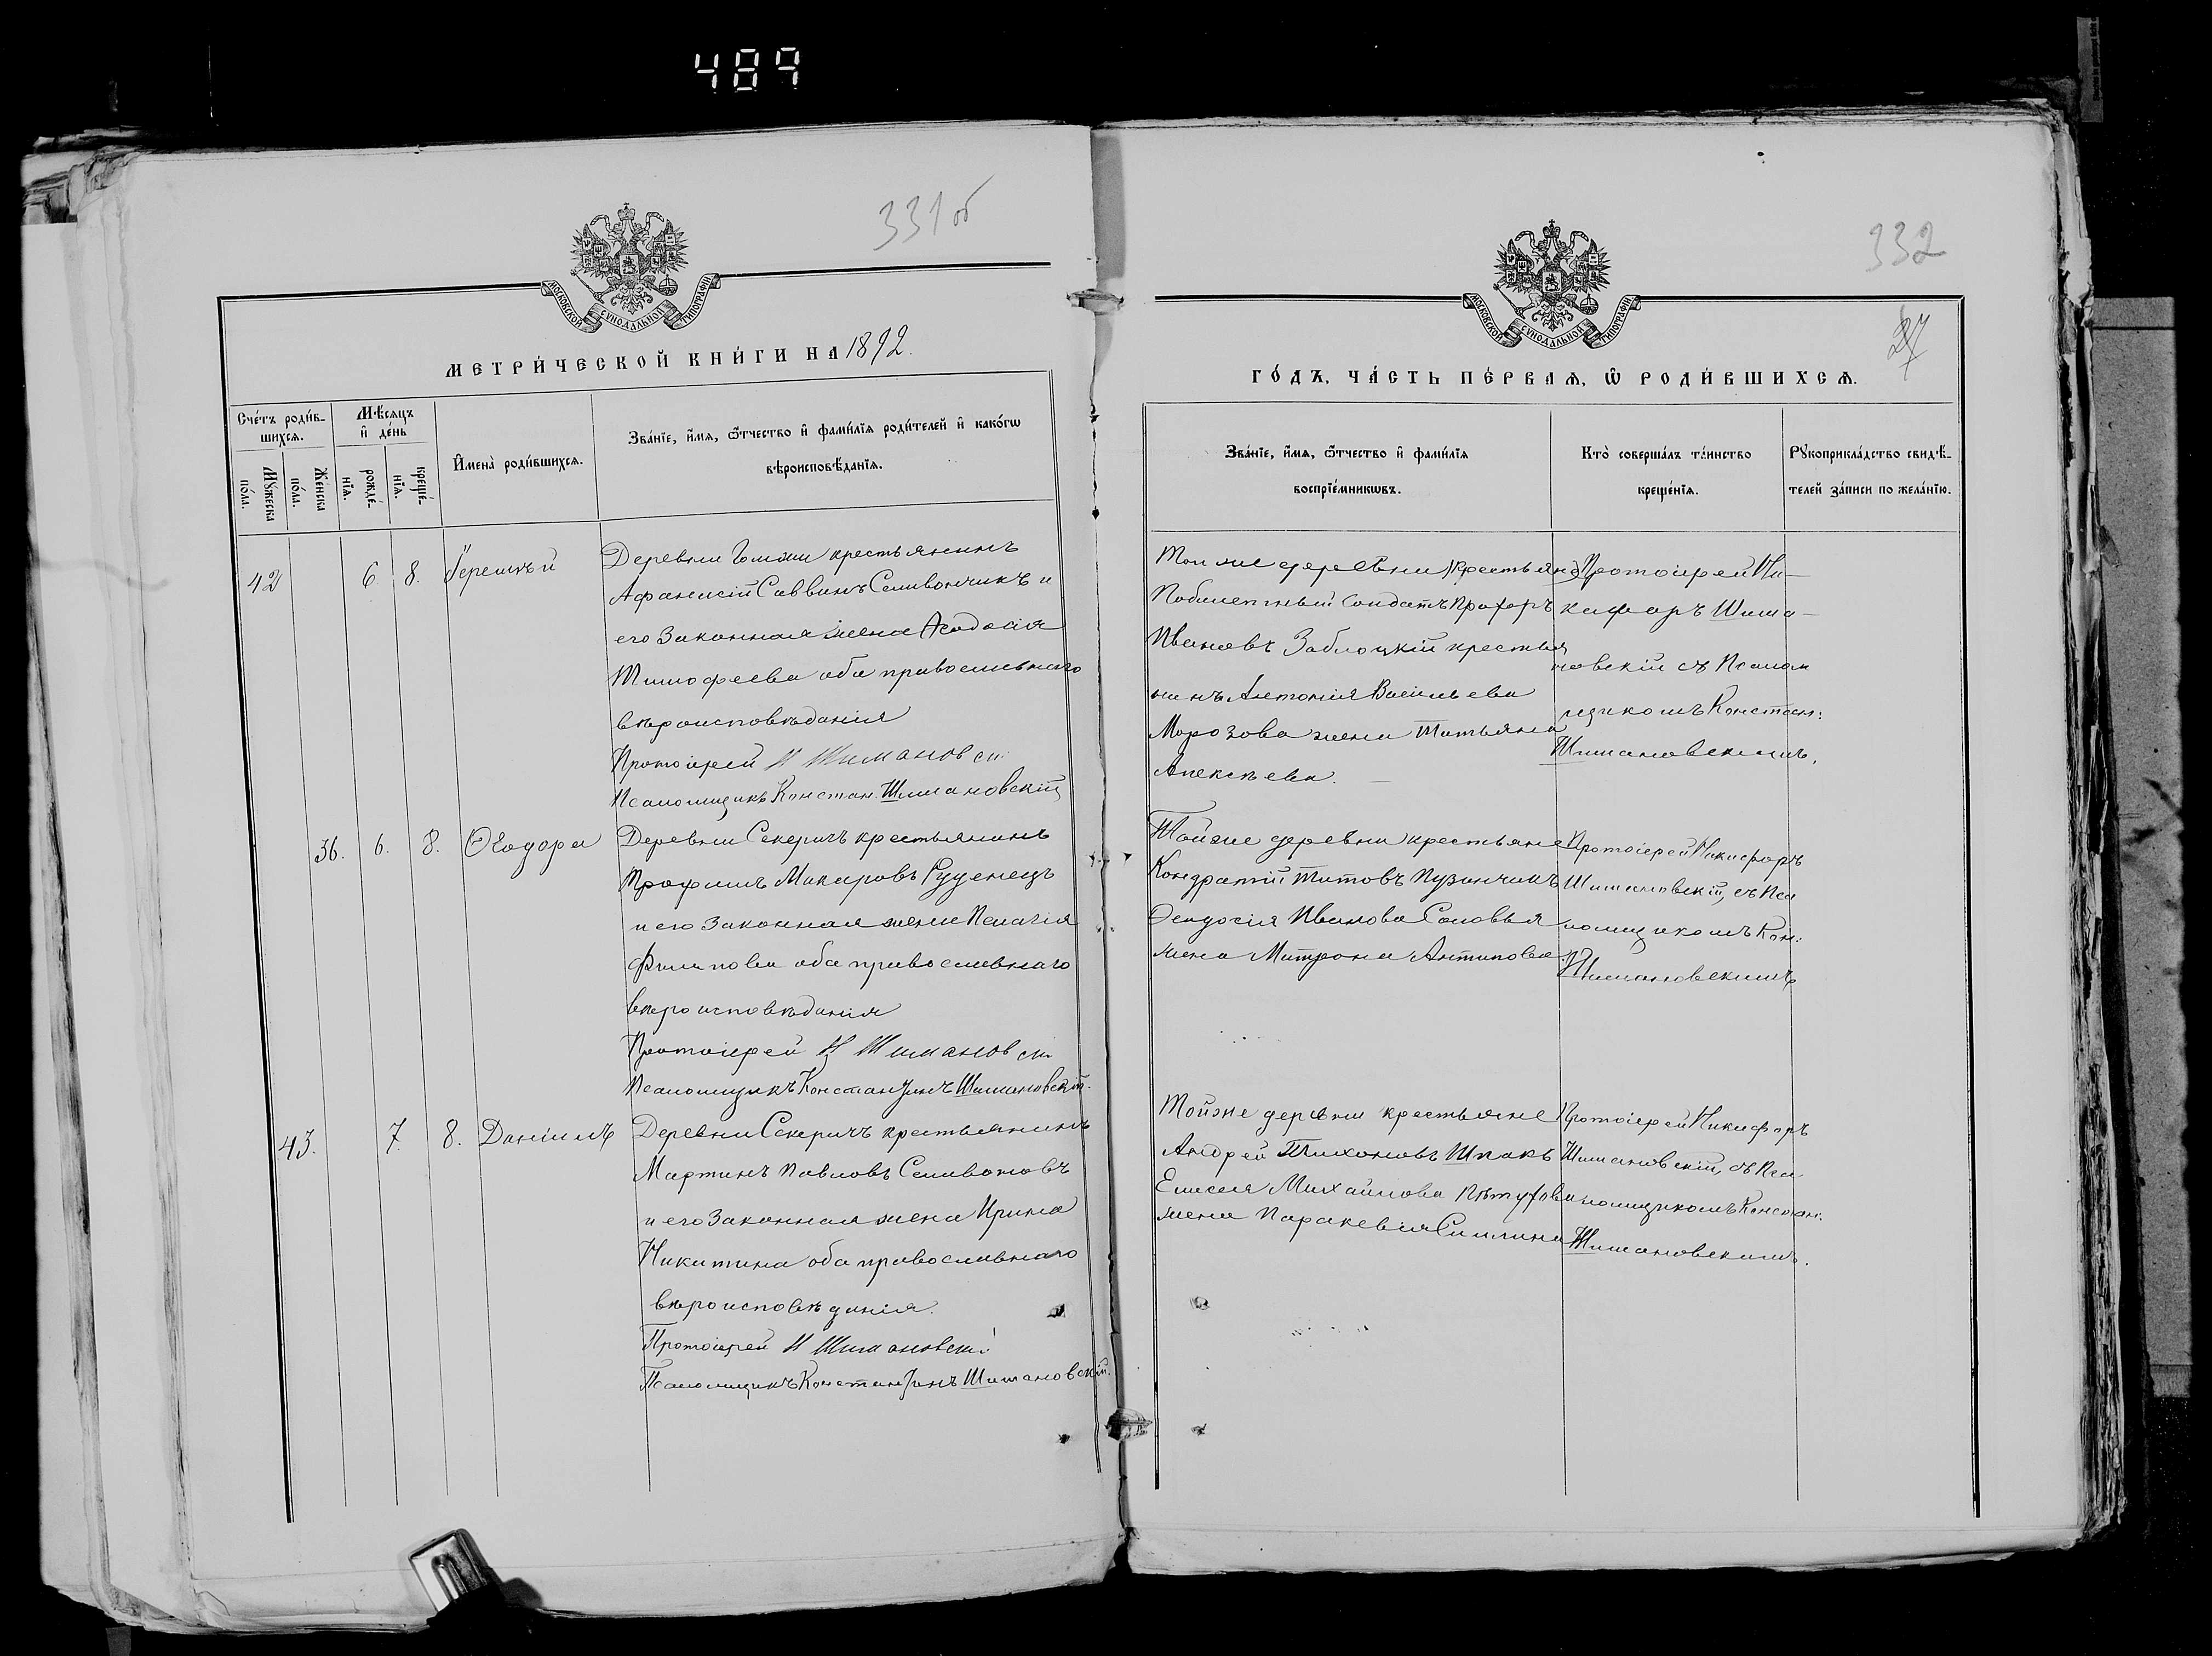 489
331 об
МОСКОВСКОЙ СѴНОДАЛЬНОЙ ТИПОГРАФІИ
МЕТРИ́ЧЕСКОЙ КНИ́ГИ НА 1892.
Сче́тъ роди́в-
шихсѧ.
Мѣ́сѧцъ
и҆ де́нь
И҆мена̀ роди́вшихсѧ.
Зва́нїе, и҆́мѧ, ѻ҆́тчество и҆ фами́лїѧ роди́телей и҆ како́гѡ
вѣроисповѣ́данїѧ.
Мꙋ́жеска
по́ла.
Же́нска
по́ла.
рожде́-
нїѧ.
креще́-
нїѧ.
42
6
8.
Деревни крестьянинъ
Афанасій Саввинъ Селивончикъ и
его законная жена Ѳеодосія
Тимофеева оба православнаго
вѣроисповѣданія
Протоіерей Н Шимановскі
Псаломщикъ Констан. Шимановскій
36.
6.
8.
Ѳеодора
Деревни Секеричъ крестьянинъ
Трофимъ Макаровъ Руденецъ
и его законная жена Пелагія
Филипова оба православнаго
вѣроисповѣданія
Протоіерей Н Шимановскі
Псаломщикъ Константинъ Шимановскій.
43.
7.
8.
Даніилъ
Деревни Секеричъ крестьянинъ
Мартинъ Павловъ Селивоновъ
и его законная жена Ирина
Никитина оба православнаго
вѣроисповѣданія.
Протоіерей Н Шимановскі
Псаломщикъ Константинъ Шимановскій.
332
МОСКОВСКОЙ СѴНОДАЛЬНОЙ ТИПОГРАФІИ
ГО́ДЪ, ЧА́СТЬ ПЕ́РВАѦ, Ѡ҆ РОДИ́ВШИХСѦ.
Зва́нїе, и҆́мѧ, ѻ҆́тчество и҆ фами́лїѧ
воспрїе́мникѡвъ.
Кто̀ соверша́лъ та́инство
креще́нїѧ.
Рꙋкоприкла́дство свидѣ́-
телей за́писи по жела́нїю.
Той же деревни крестьяне
Побилетный солдатъ Прохоръ
Ивановъ Заблоцкій крестья
нинъ Антонія Васильева
Морозова жена Татьяна
Алексѣева.
Протоіерей Ни-
кифоръ Шима-
новскій съ Псалом
щикомъ Констан:
Шимановскимъ.
Тойже деревни крестьяне
Кондратій Титовъ Пузанчикъ
Ѳеодосія Иванова Соловья
жена Матрона Антипова.
Протоіерей Никифоръ
Шимановскій, съ Пса
ломщикомъ Кон:
Шимановскимъ
Тойже деревни крестьяне
Андрей Тихоновъ Шпакъ
Елисея Михайлова Пѣтухова
жена Параскевія
Протоіерей Никифоръ
Шимановскій, съ Пса
ломщикомъ Констан:
Шимановскимъ.